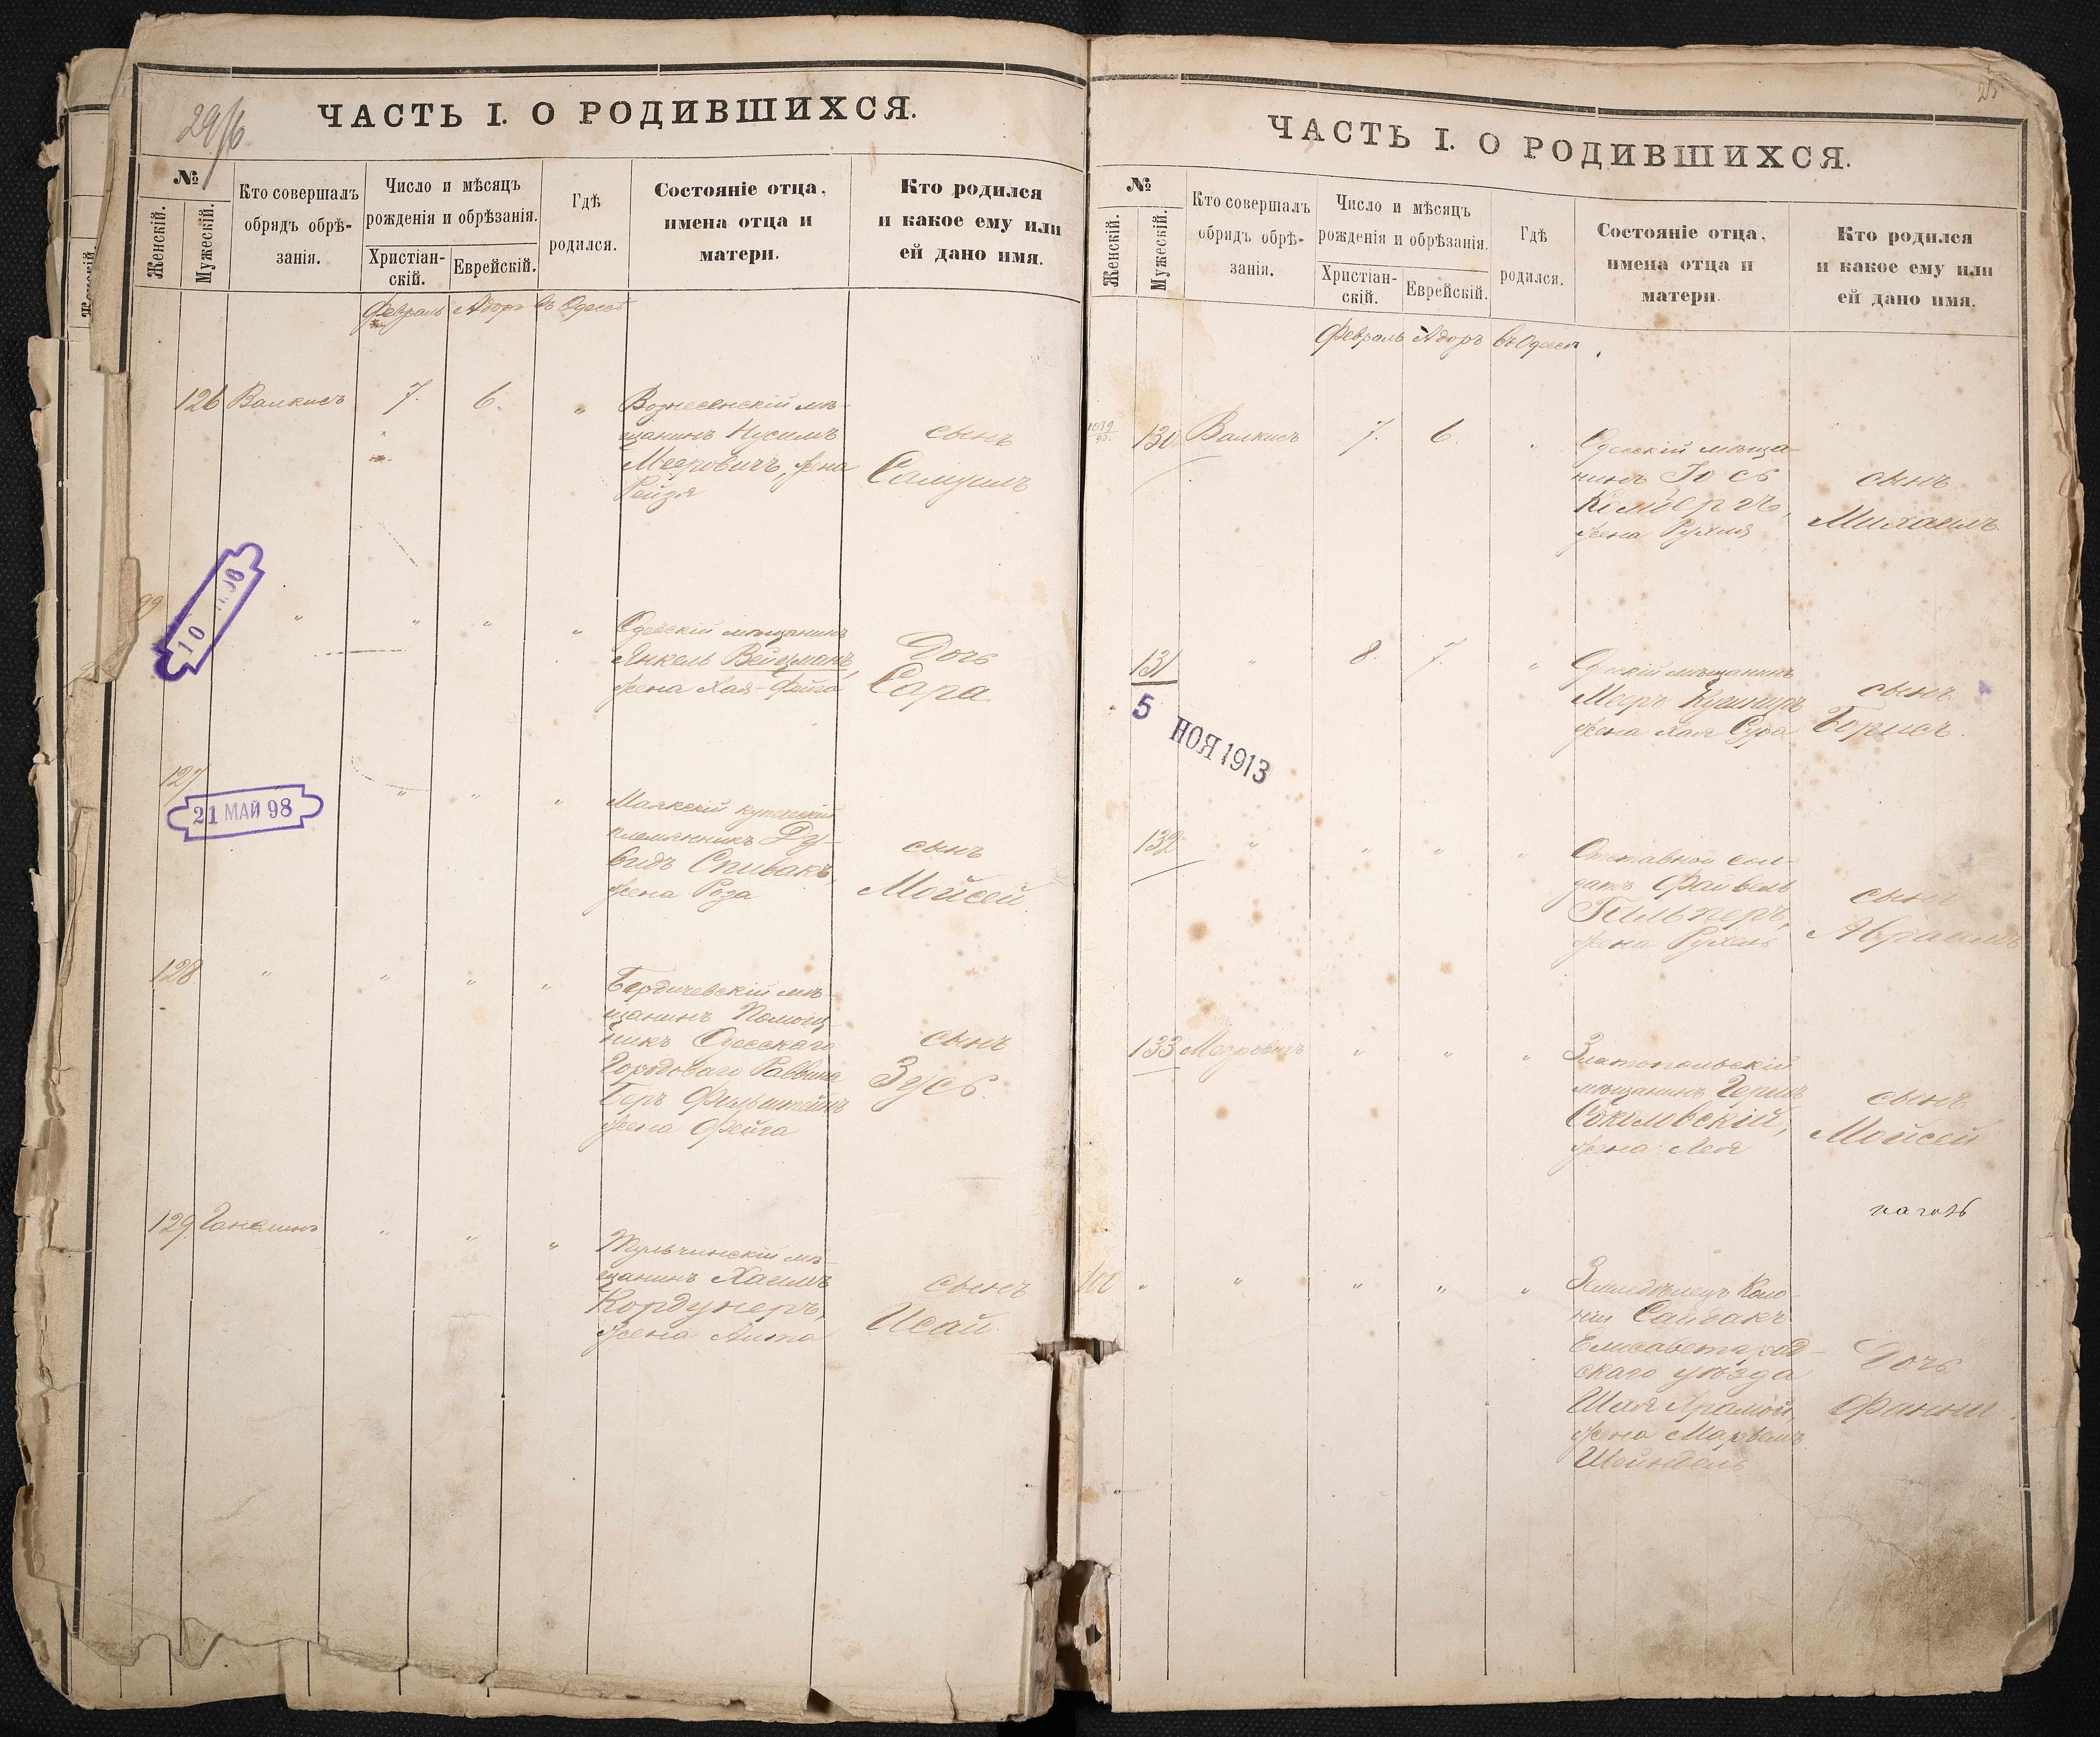 29/6
ЧАСТЬ I. О РОДИВШИХСЯ.
№
Женскій.
Мужескій.
Кто совершалъ
обрядъ обрѣ-
занія.
Число и мѣсяцъ
рожденія и обрѣзанія.
Христіан-
скій.
Еврейскій.
Гдѣ
родился.
Состояніе отца,
имена отца и
матери.
Кто родился
и какое ему или
ей дано имя.
Февраль Адоръ въ Одессѣ
126 Валкисъ 7. 6. „ Вознесенскій мѣ-
щанинъ Нусимъ
Мееровичъ, жена
Рейзя
сынъ
Самуилъ
99
10
„ „ „ „ Одесскій мѣщанинъ
Янкель Вейцманъ,
жена Хая-Фейга
Дочь
Сара.
127
21 МАЙ 98
„ „ „ Маякскій купеческій
племянникъ Ду-
видъ Спивакъ,
жена Роза
сынъ
Мойсей
128. „ „ „ „ Бердичевскій мѣ-
щанинъ Помощ-
никъ Одесскаго
Городоваго Раввина
Беръ Фильштейнъ
жена Фейга
сынъ
Зусь.
129. Ганелинъ „ „ „ Тульчинскій мѣ-
щанинъ Хаимъ
Кордунеръ,
жена Анта
сынъ
Исай.
25
ЧАСТЬ I. О РОДИВШИХСЯ.
№
Женскій.
Мужескій.
Кто совершалъ
обрядъ обрѣ-
занія.
Число и мѣсяцъ
рожденія и обрѣзанія.
Христіан-
скій.
Еврейскій.
Гдѣ
родился.
Состояніе отца,
имена отца и
матери.
Кто родился
и какое ему или
ей дано имя.
Февраль Адоръ въ Одессѣ
130 Валкисъ 7. 6. „ Одесскій мѣща-
нинъ Іось
жена Рухля
сынъ
Михаилъ.
131 „ 8. 7. „ Одесскій мѣщанинъ
Меиръ Кушниръ
жена Хая Сура
сынъ
Борисъ.
5 НОЯ 1913
132 „ „ „ „ Отставной сол-
датъ Файвель
жена Рухль
сынъ
Абрамъ
133 Мееровичъ „ „ „ Златопольскій
мѣщанинъ Гершъ
Соколовскій,
жена Лея
сынъ
Мойсей
100 „ „ „ „ „ Земледѣлецъ Коло-
ніи Сайдакъ
Елисаветград-
скаго уѣзда
Шая
жена Марьямъ
Шейндель
Дочь
Фанни.